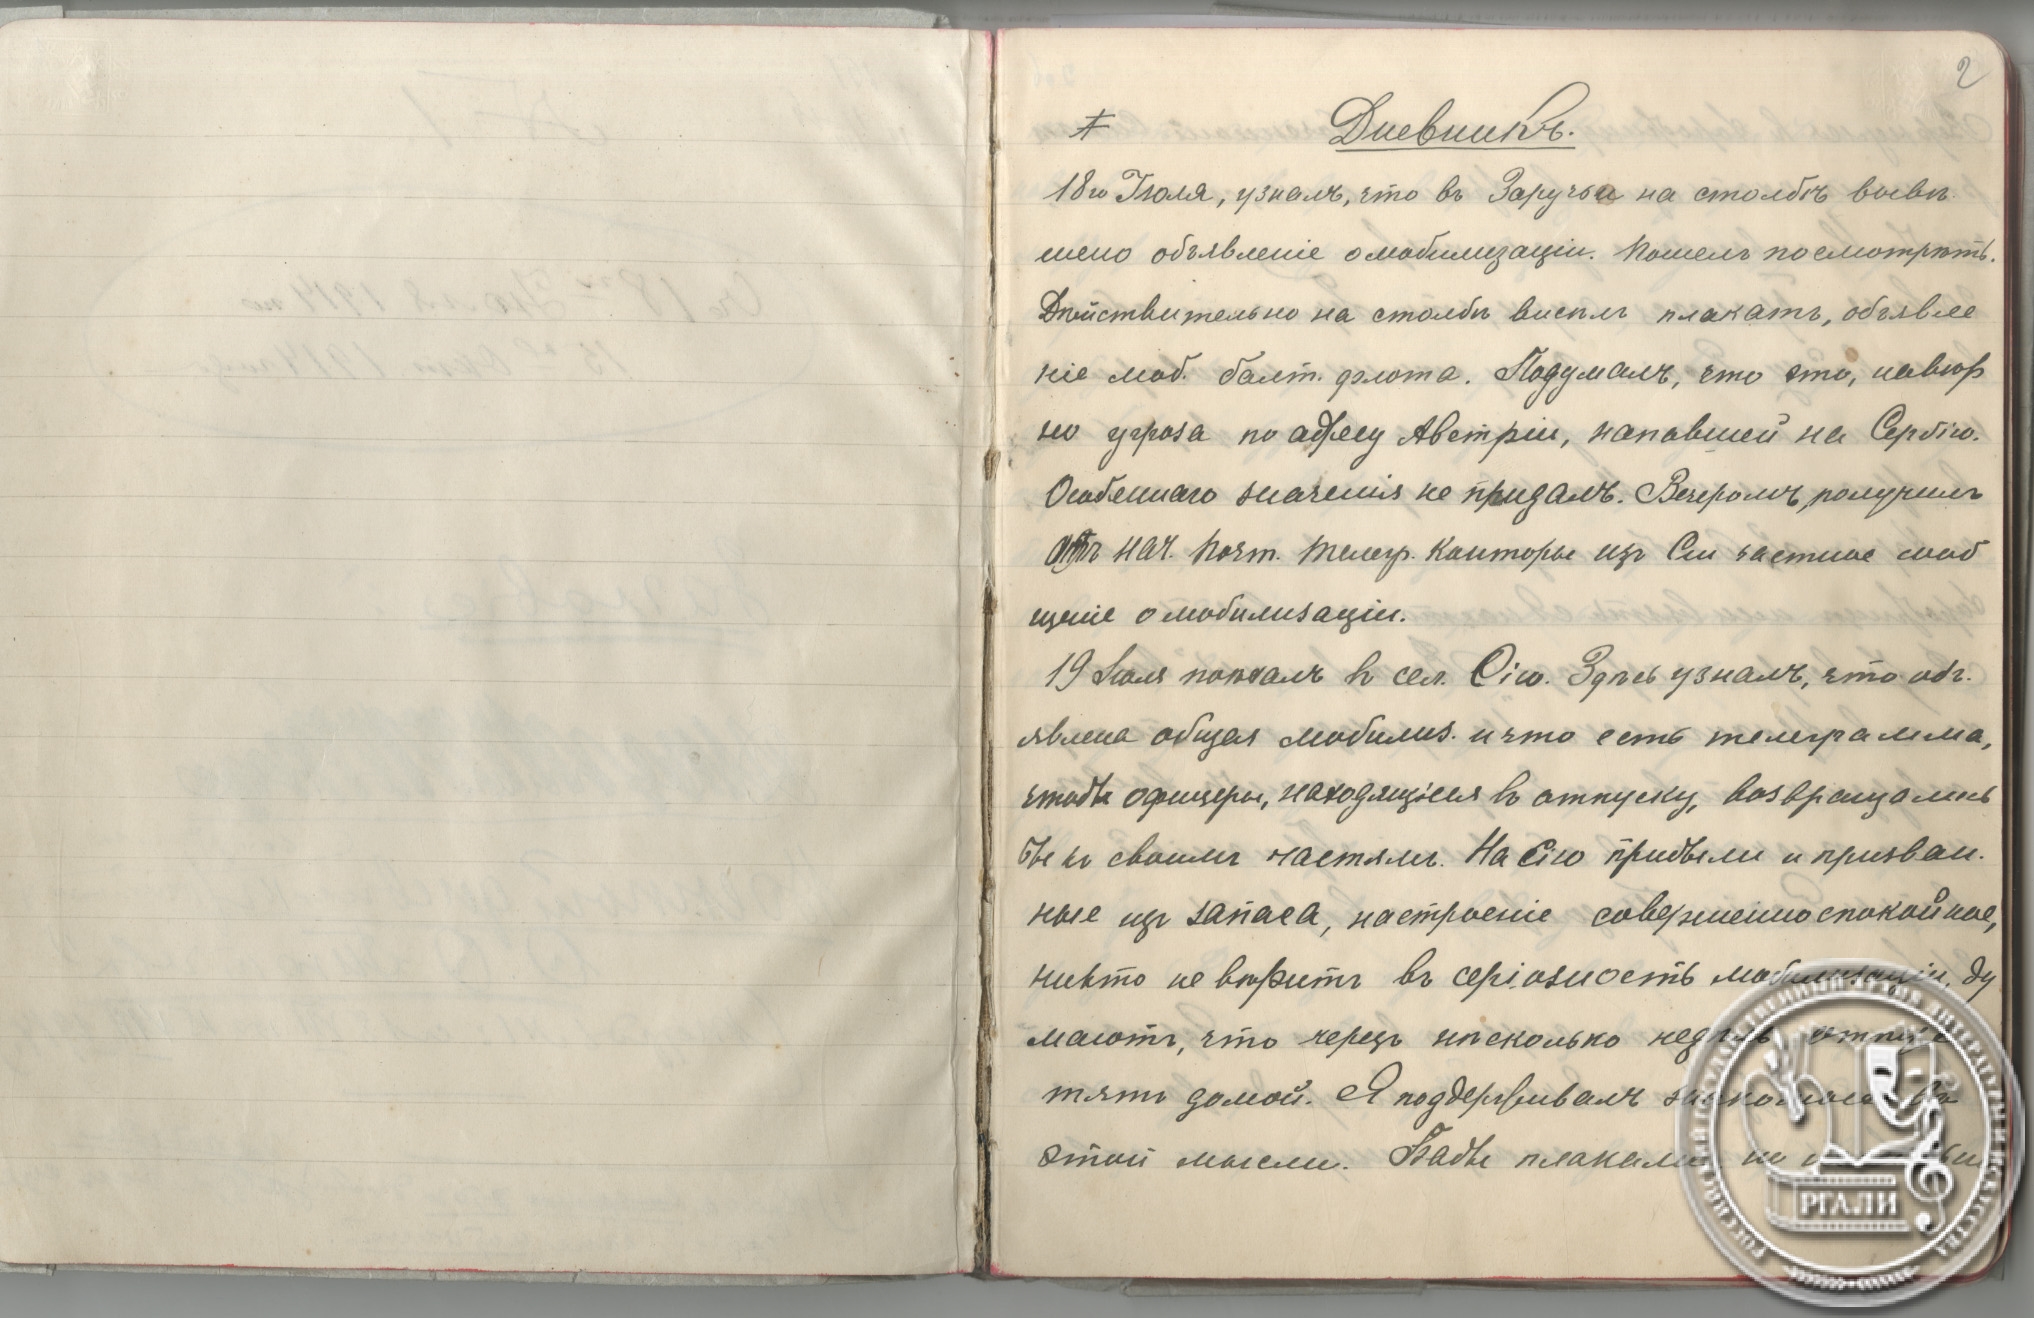 2
Дневникъ.
18го Іюля, узналъ, что въ Заручьи на столбѣ вывѣ
шено объявленіе о мобилизаціи. Пошелъ посмотрѣть.
Дѣйствительно на столбѣ висѣлъ плакатъ, объявле
ніе моб. балт. флота. Подумалъ, что это, навѣр
но угроза по адресу Австріи, напавшей на Сербію.
Особеннаго значенія не придалъ. Вечеромъ, получилъ
отъ нач. Почт. телегр. конторы изъ Сіи частное сооб
щеніе о мобилизаціи.
19 Іюля поѣхалъ въ сел. Сію. Здѣсь узналъ, что объ-
явлена общая мобилиз. и что есть телеграмма,
чтобы офицеры, находящіеся въ отпуску, возвращались
бы къ своимъ частямъ. На Сію прибыли и призван-
ные изъ запаса, настроеніе совершенно спокойное,
никто не вѣритъ въ серіозность мобилизаціи, ду
маютъ, что черезъ нѣсколько недѣль отпус
тятъ домой. Я поддерживалъ въ
этой мысли. Бабы плакали но
РГАЛИ
РОССИЙСКИЙ ГОСУДАРСТВЕННЫЙ АРХИВ ЛИТЕРАТУРЫ И ИСКУССТВА